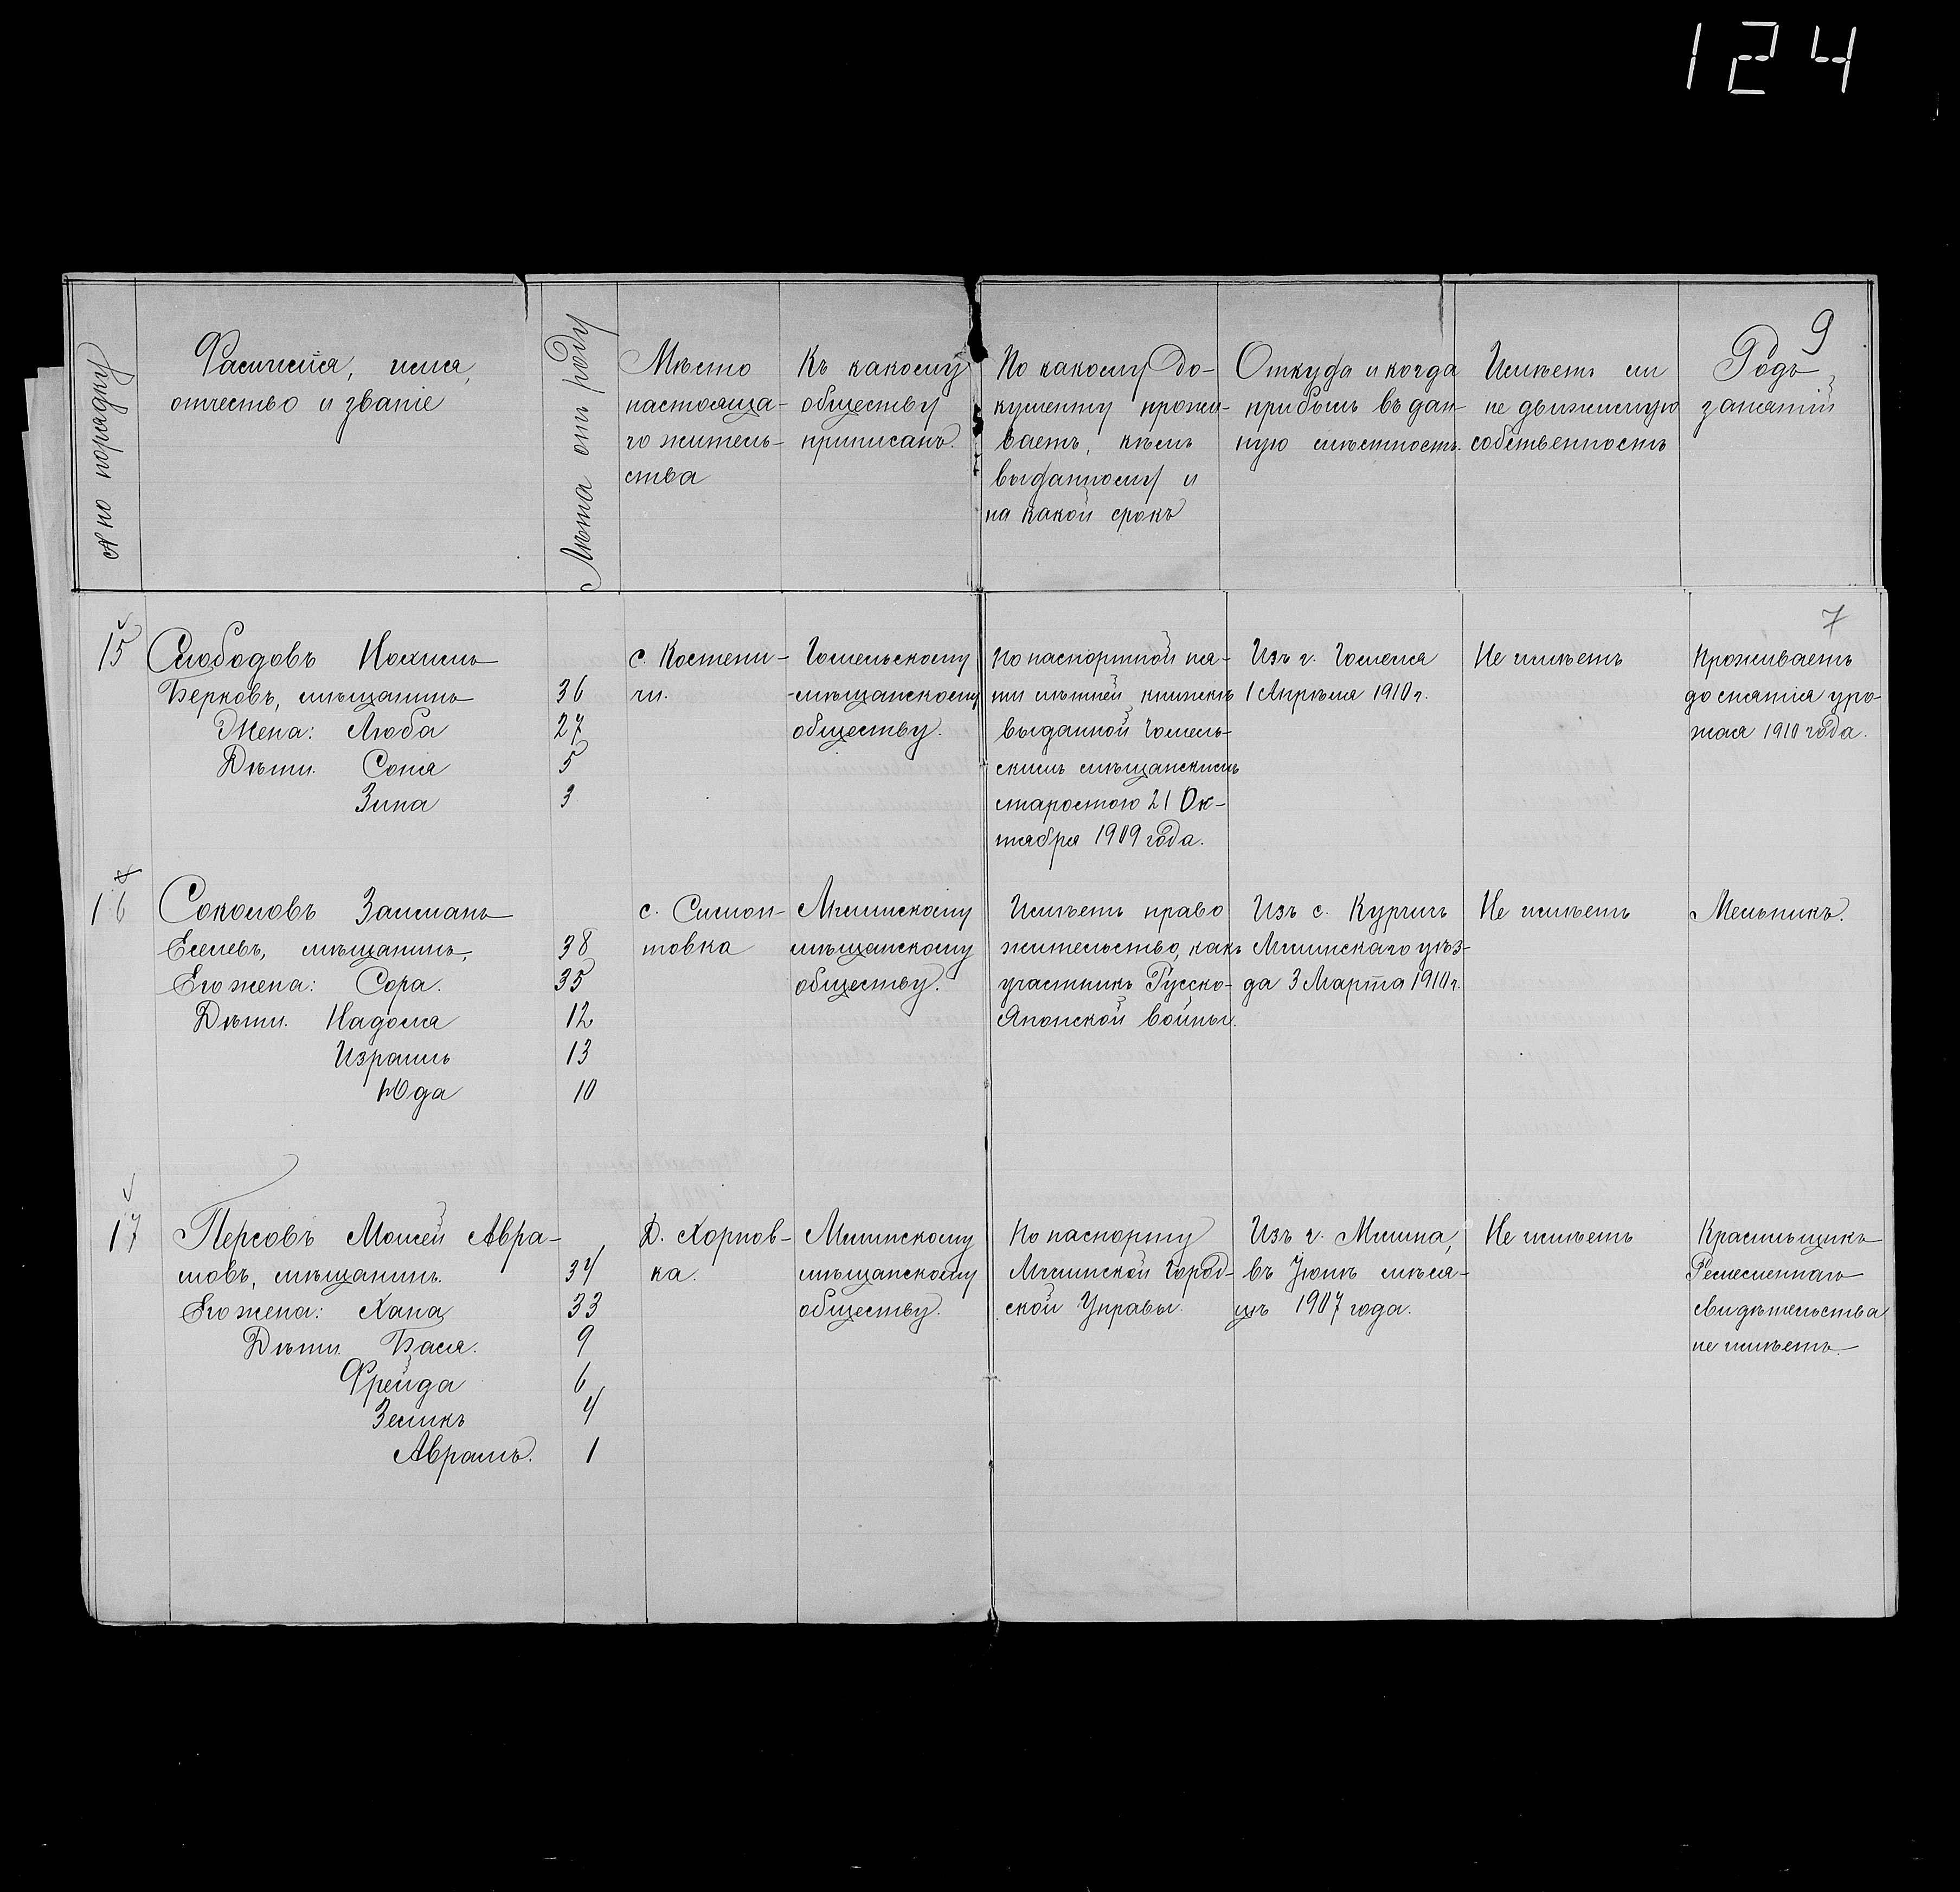 124
9
№ по порядку
Фамилія, имя,
отчество и званіе
Лѣта отъ роду
Мѣсто
настояща-
го житель-
ства
Къ какому
обществу
приписанъ.
По какому до-
кументу прожи-
ваетъ, кѣмъ
выданному и
на какой срокъ
Откуда и когда
прибылъ въ дан-
ную мѣстность.
Имѣетъ ли
не движимую
собственность
Родъ
занятій
7
15
Слободовъ Нохимъ
Берковъ, мѣщанинъ 36
Жена: Люба 27
Дѣти. Соня 5
Зина 3
с. Костени-
чи.
Гомельскому
мѣщанскому
обществу.
По паспортной пя-
ти лѣтней книжкѣ
выданной Гомель-
скимъ мѣщанскимъ
старостою 21 Ок-
тября 1909 года.
Изъ г. Гомеля
1 Апрѣля 1910 г.
Не имѣетъ
Проживаетъ
до снятія уро-
жая 1910 года.
16
Соколовъ Залманъ
Еселевъ, мѣщанинъ, 38
Его жена: Сора. 35
Дѣти. Надоля 12
Израиль 13
Юда 10
с. Симон-
товка
Мглинскому
мѣщанскому
обществу.
Имѣетъ право
жительство, какъ
участникъ Русско-
Японской войны.
Изъ с. Кургичъ
Мглинскаго уѣз-
да 3 Марта 1910 г.
Не имѣетъ
Мельникъ.
17
Персовъ Моисей Авра-
мовъ, мѣщанинъ. 34
Его жена: Хана 33
Дѣти Бася. 9
Фрейда 6
Зеликъ 4
Авраамъ. 1
Д. Хорнов-
ка.
Мглинскому
мѣщанскому
обществу.
По паспорту
Мглинской Город-
ской Управы.
Изъ г. Мглина,
въ Іюнѣ мѣся-
цѣ 1907 года.
Не имѣетъ
Красильщикъ
Ремесленнаго
свидѣтельства
не имѣетъ.